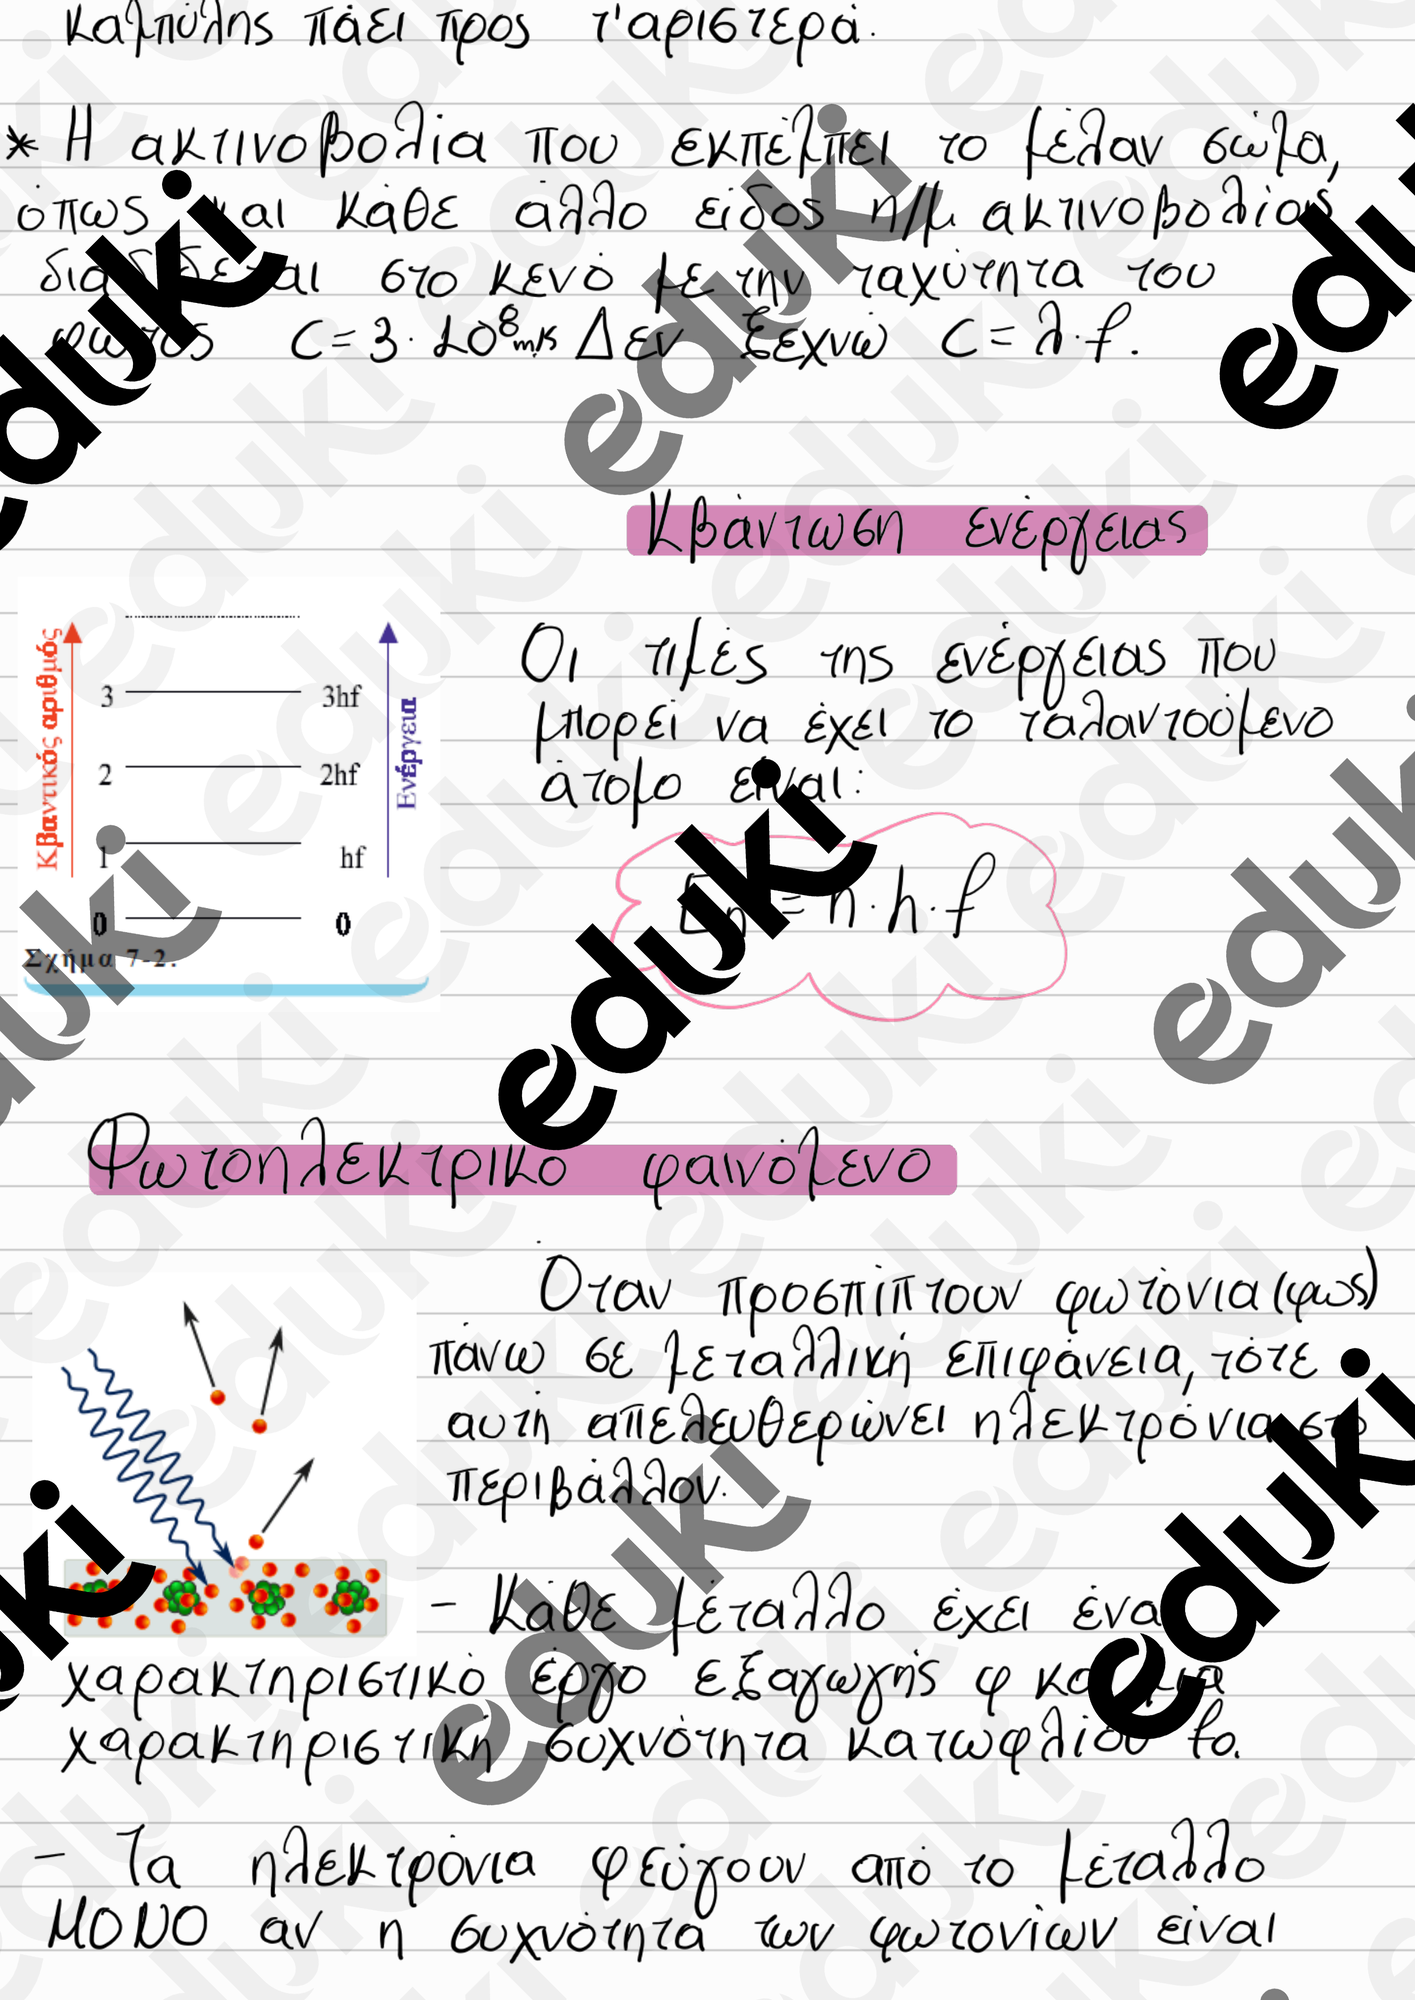 καμπύλης πάει προς τ'αριστερά.
* Η ακτινοβολία που εκπέμπει το μέλαν σώμα,
όπως και κάθε άλλο είδος η/μ ακτινοβολίας
διαδίδεται στο κενό με την ταχύτητα του
φωτός C = 3 · 10⁸ m/s Δεν ξεχνώ C = λ · f.
Κβάντωση ενέργειας
Κβαντικός αριθμός
Ενέργεια
3 3hf
2 2hf
1 hf
0 0
Σχήμα 7-2.
Οι τιμές της ενέργειας που
μπορεί να έχει το ταλαντούμενο
άτομο είναι:
En = n · h · f
Φωτοηλεκτρικό φαινόμενο
Όταν προσπίπτουν φωτόνια (φως)
πάνω σε μεταλλική επιφάνεια, τότε
αυτή απελευθερώνει ηλεκτρόνια στο
περιβάλλον.
- Κάθε μέταλλο έχει ένα
χαρακτηριστικό έργο εξαγωγής φ και μια
χαρακτηριστική συχνότητα κατωφλίου fo.
- Τα ηλεκτρόνια φεύγουν από το μέταλλο
ΜΟΝΟ αν η συχνότητα των φωτονίων είναι
eduki
eduki
eduki
eduki
eduki
eduki
eduki
eduki
eduki